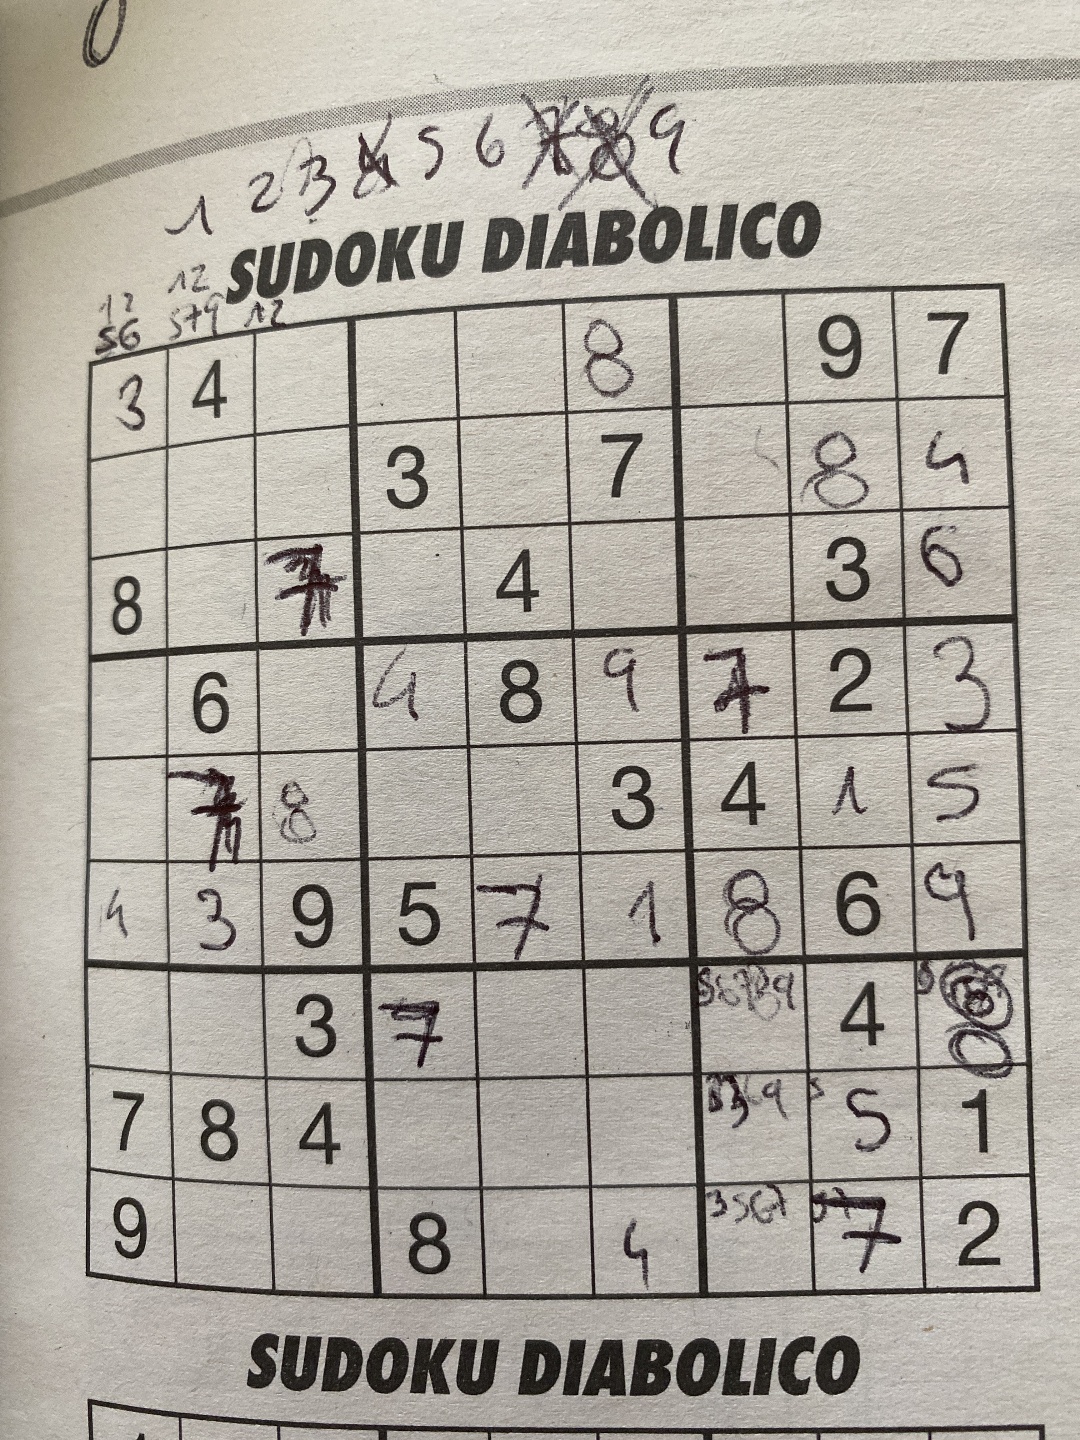 1 2 3 4 5 6 7 8 9
SUDOKU DIABOLICO
12 12
56 579 12
3 4 8 9 7
3 7 8 4
8 7 4 3 6
6 4 8 9 7 2 3
7 8 3 4 1 5
4 3 9 5 7 1 8 6 9
3 7 4 8
7 8 4 5 1
9 8 4 3567 7 2
SUDOKU DIABOLICO